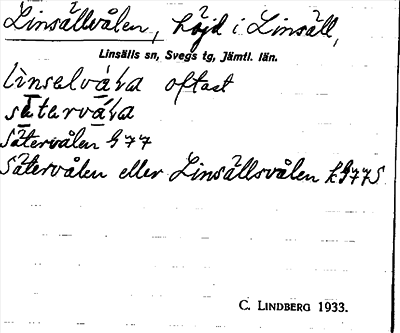 Linsällvålen, höjd i Linsäll,
Linsälls sn, Svegs tg, Jämtl. län.
linselvåła oftast
sätervåła
Sätervålen G 77
Sätervålen eller Linsällsvålen
C. LINDBERG 1933.